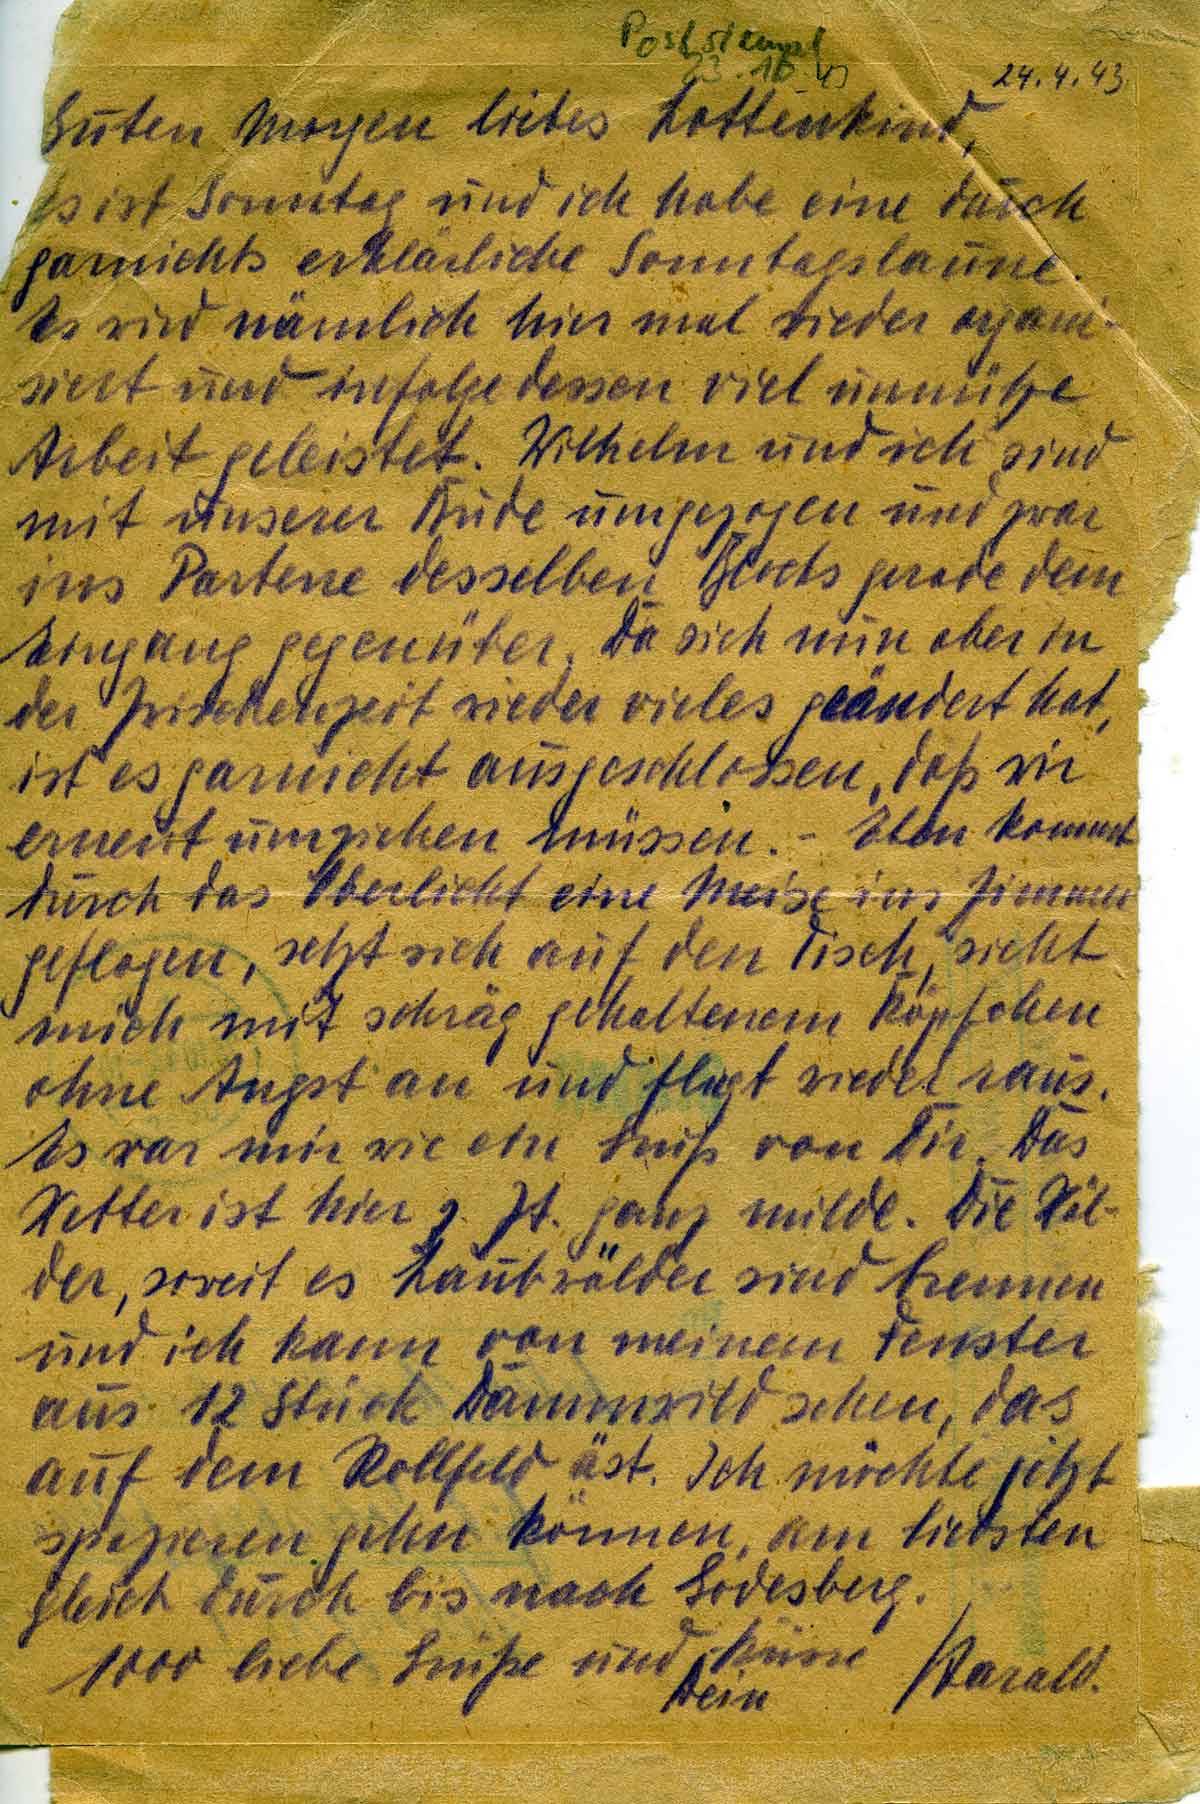 Poststempel
23.10.43
24.4.43.
Guten Morgen liebes Lottenkind,
es ist Sonntag und ich habe eine durch
garnichts erklärliche Sonntagslaune.
Es wird nämlich hier mal wieder organi-
siert und infolgedessen viel unnütze
Arbeit geleistet. Wilhelm und ich sind
mit unserer Bude umgezogen und zwar
ins Parterre desselben Blocks gerade dem
Eingang gegenüber. Da sich nun aber in
der Zwischenzeit wieder vieles geändert hat,
ist es garnicht ausgeschlossen, daß wir
erneut umziehen müssen. - Eben kommt
durch das Oberlicht eine Meise ins Zimmer
geflogen, setzt sich auf den Tisch, sieht
mich mit schräg gehaltenem Köpfchen
ohne Angst an und fliegt wieder raus.
Es war mir wie ein Gruß von Dir. Das
Wetter ist hier z. Zt. ganz milde. Die Wäl-
der, soweit es Laubwälder sind brennen
und ich kann von meinem Fenster
aus 12 Stück Dammwild sehen, das
auf dem Rollfeld äst. Ich möchte jetzt
spazieren gehn können, am liebsten
gleich durch bis nach Godesberg.
1000 liebe Grüße und Küsse
Dein Harald.